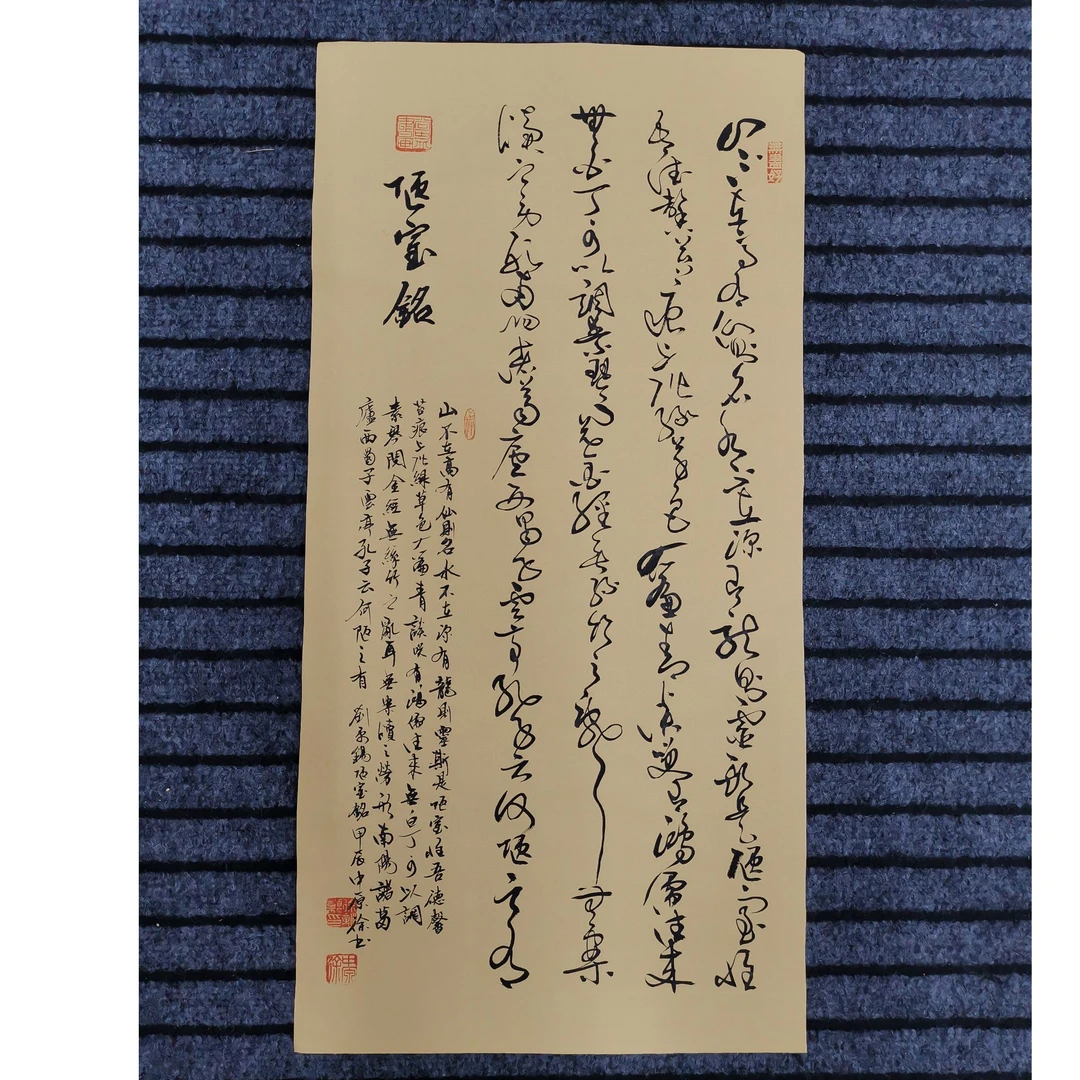 山不在高有仙則名水不在深有龍則靈斯是陋室惟
吾德馨苔痕上阶綠草色入簾青談笑有鴻儒往來
無白丁可以調素琴閱金經無絲竹之亂耳無案
牘之勞形南陽諸葛廬西蜀子雲亭孔子云何陋之有
陋室銘
山不在高有仙則名水不在深有龍則靈斯是陋室惟吾德馨
苔痕上阶綠草色入簾青談咲有鴻儒往來無白丁可以調
素琴閱金經無絲竹之亂耳無案牘之勞形南陽諸葛
廬西蜀子雲亭孔子云何陋之有 劉禹錫陋室銘甲辰中原徐书